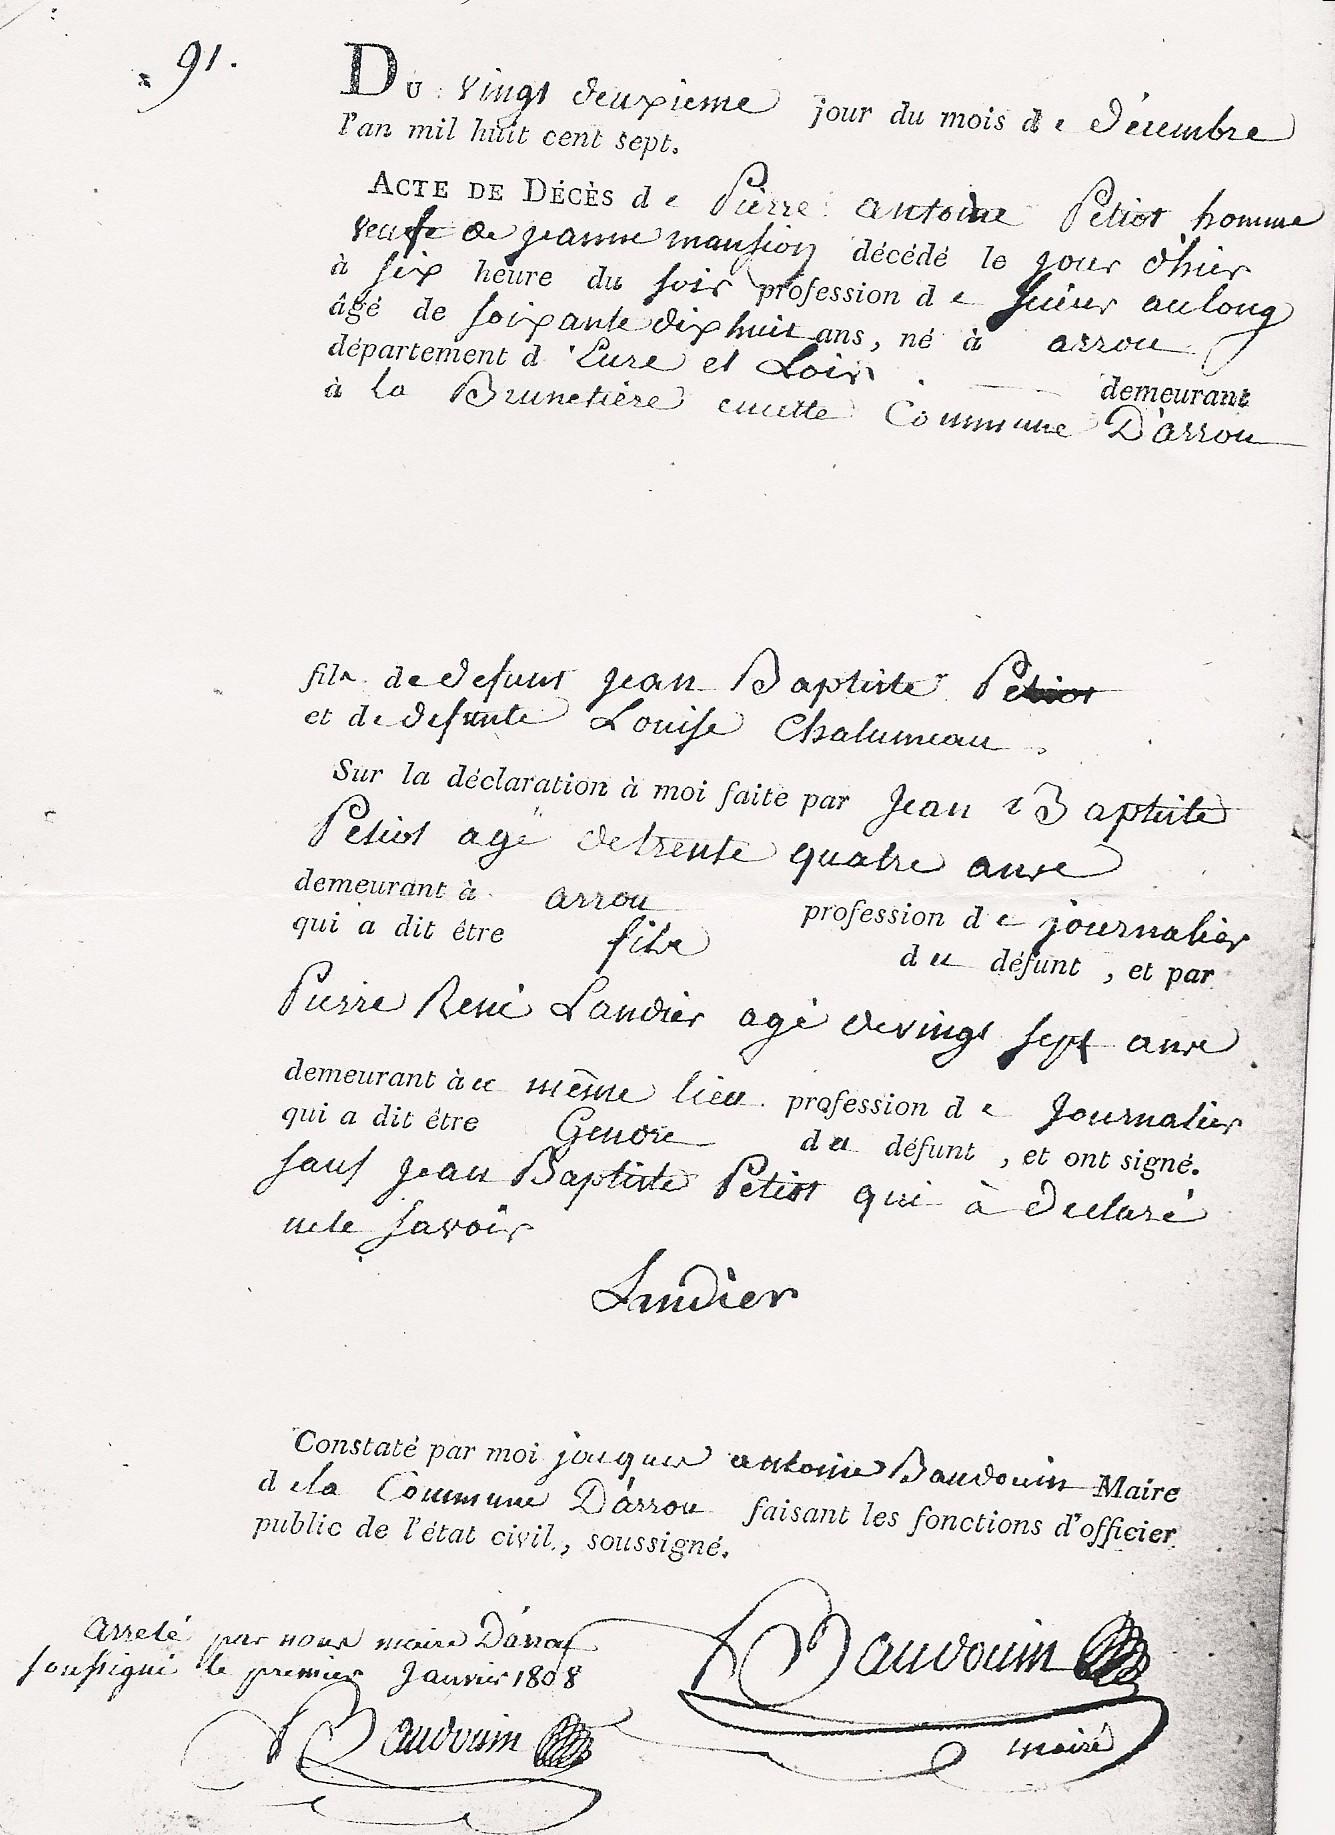 91.
Du vingt deuxieme jour du mois de décembre
l'an mil huit cent sept.
ACTE DE DÉCÈS de Pierre antoine Petiot homme
veufe de jeanne mansion décédé le jour d'hier
à six heure du soir profession de scieur au long
âgé de soixante dix huit ans, né à arrou
département d'Eure et Loir. demeurant
à la Brunetière susditte Commune D'arrou
fils de defunt jean Baptiste Petiot
et de defunte Louise Chalumeau.
Sur la déclaration à moi faite par jean Baptiste
Petiot agé de trente quatre ans
demeurant à arrou profession de journalier
qui a dit être fils du défunt, et par
Pierre René Landier agé de vingt sept ans
demeurant à ce même lieu profession de Journalier
qui a dit être Gendre du défunt, et ont signé.
sauf jean Baptiste Petiot qui à declaré
ne le savoir
Landier
Constaté par moi jacques antoine Baudouin Maire
de la Commune D'arrou faisant les fonctions d'officier
public de l'état civil, soussigné.
arreté par nous maire D'arrou
soussigné le premier Janvier 1808
Baudouin
maire
Baudouin